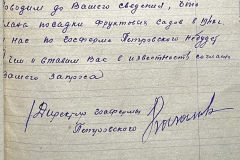 оводим до Вашего сведения, что
лана посадки фруктовых садов в
нас по госферма Петровского небудет
чем и ставим Вас в известность согласно
Вашего запроса
Директор госфермы
Петровского